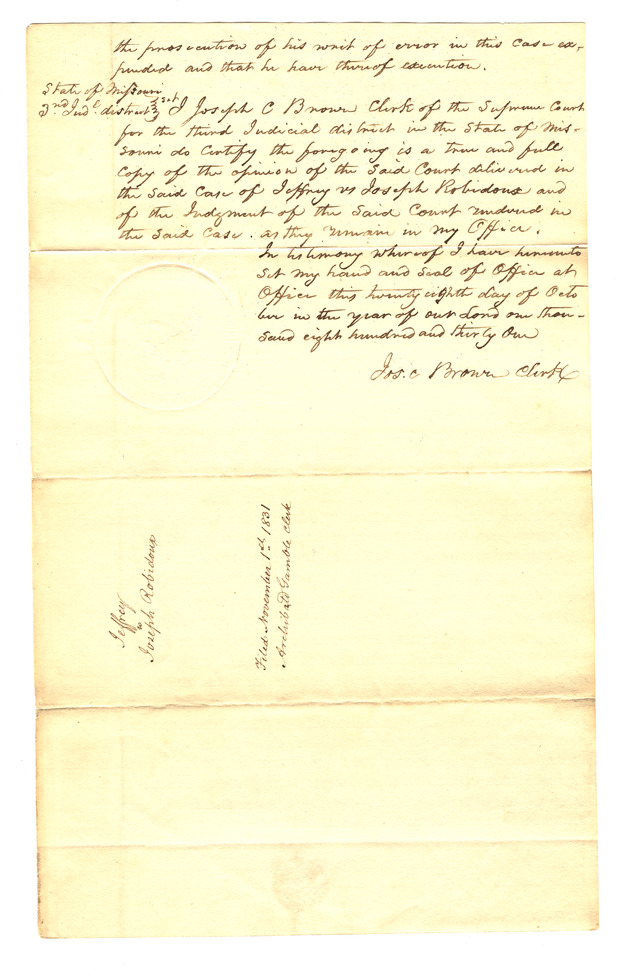 the prosecution of his writ of error in this case ex-
pended and that he have thereof execution.
State of Missouri
3rd Judl. district } Sct
I Joseph C Brown Clerk of the Supreme Court
for the third Judicial district in the State of Mis-
souri do Certify the foregoing is a true and full
Copy of the opinion of the Said Court delivered in
the Said Case of Jeffrey vs Joseph Robidoux and
of the Judgment of the Said Court rendered in
the Said Case. as they remain in my Office.
In testimony whereof I have hereunto
Set my hand and seal of Office at
Office this twenty eighth day of Octo
ber in the year of our Lord one thou-
sand eight hundred and thirty One
Jos. C Brown Clerk
Jeffrey
vs
Joseph Robidoux
Filed November 1st 1831
Archibald Gamble Clerk